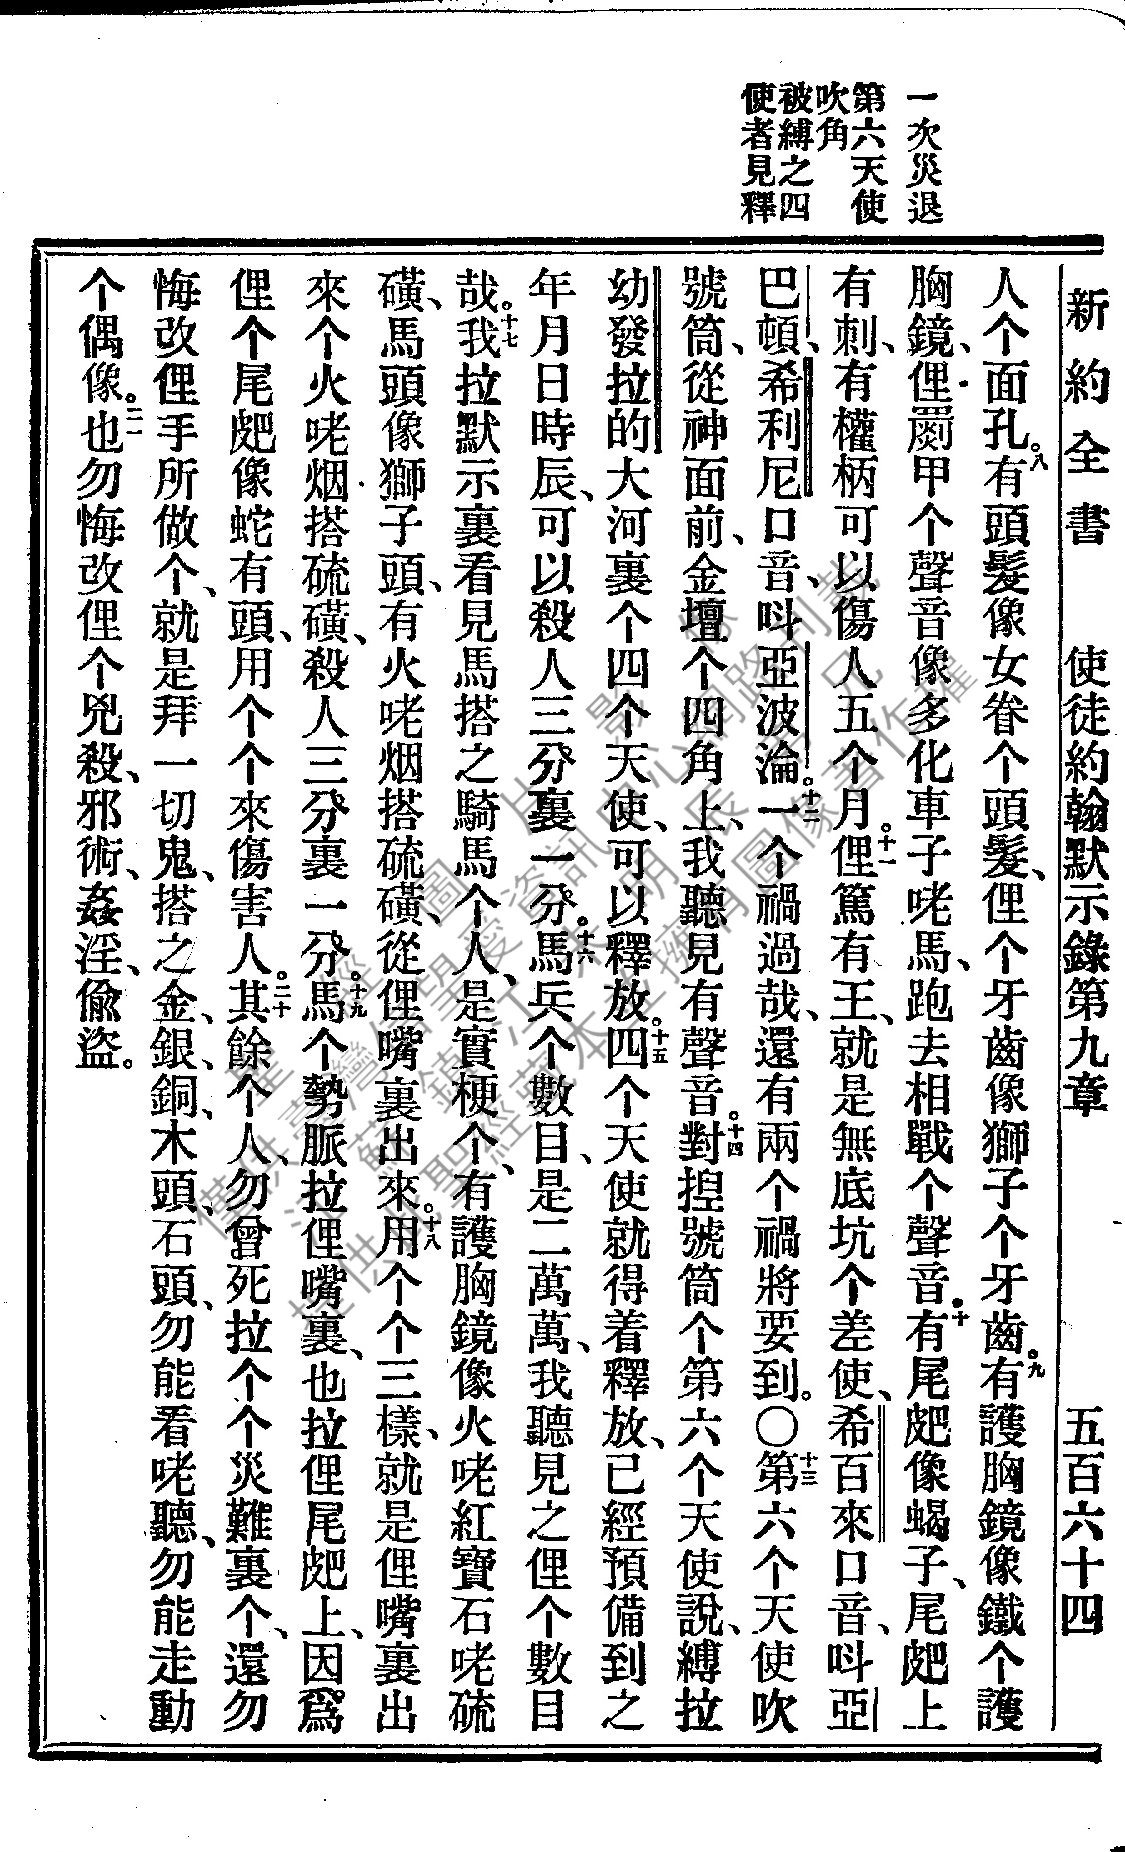 新約全書 使徒約翰默示錄第九章 五百六十四
一次災退
第六天使
吹角
被縛之四
使者見釋
人个面孔。八有頭髮像女眷个頭髮、俚个牙齒像獅子个牙齒。九有護胸鏡像鐵个護
胸鏡、俚罽甲个聲音像多化車子咾馬、跑去相戰个聲音。十有尾䶕像蝎子、尾䶕上
有刺、有權柄可以傷人五个月。十一俚篤有王、就是無底坑个差使、希百來口音、呌亞
巴頓、希利尼口音、呌亞波淪。十二一个禍過哉、還有兩个禍將要到。〇十三第六个天使吹
號筒、從神面前、金壇个四角上、我聽見有聲音。十四對揑號筒个第六个天使說、縛拉
幼發拉的大河裏个四个天使、可以釋放。十五四个天使就得着釋放、已經預備到之
年月日時辰、可以殺人三分裏一分。十六馬兵个數目、是二萬萬、我聽見之俚个數目
哉。十七我拉默示裏看見馬搭之騎馬个人、是實梗个、有護胸鏡像火咾紅寶石咾硫
磺、馬頭像獅子頭、有火咾烟搭硫磺、從俚嘴裏出來。十八用个个三樣、就是俚嘴裏出
來个火咾烟搭硫磺、殺人三分裏一分。十九馬个勢脈拉俚嘴裏、也拉俚尾䶕上、因爲
俚个尾䶕像蛇有頭、用个个來傷害人。二十其餘个人、勿曾死拉个个災難裏个、還勿
悔改俚手所做个、就是拜一切鬼、搭之金、銀、銅、木頭、石頭、勿能看咾聽、勿能走動
个偶像。二一也勿悔改俚个兇殺、邪術、姦淫、偸盜。